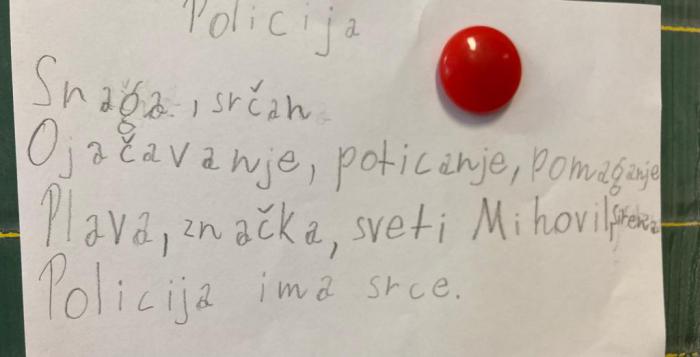 Policija
Snaga, srčan
Ojačavanje, poticanje, pomaganje
Plava, značka, sveti Mihovil, sirena
Policija ima srce.